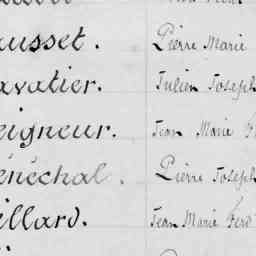 ausset. Pierre Marie
avatier. Julien Joseph
eigneur. Jean Marie F
énéchal. Pierre Joseph
illard. Jean Marie Ferd